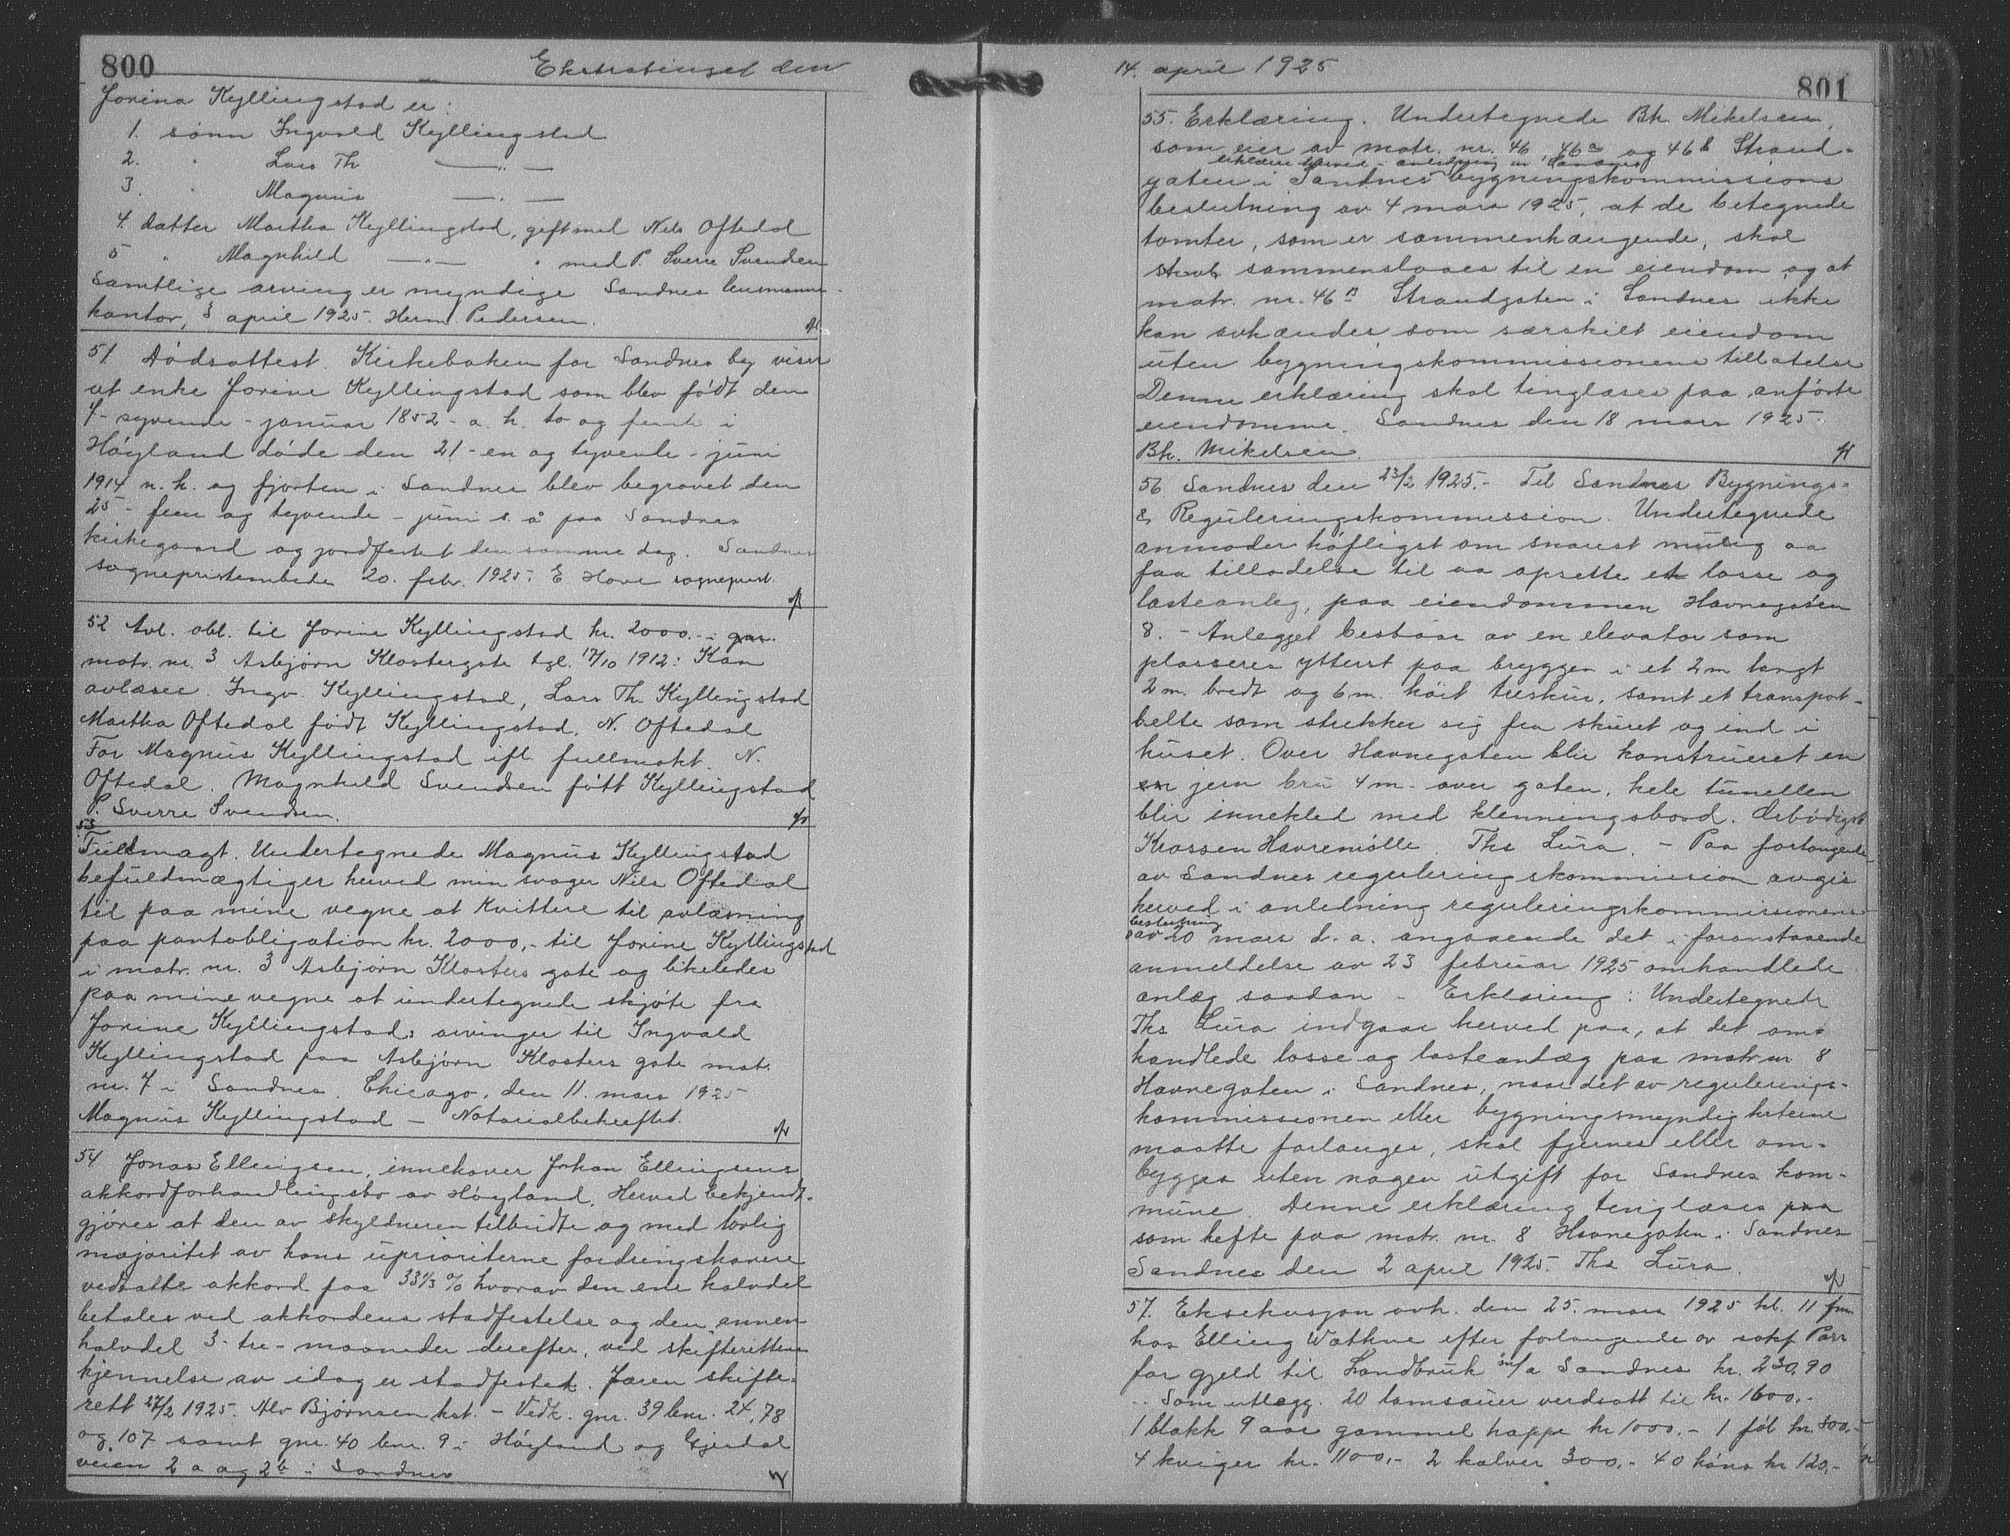 800
Ekstratinget den
Jorina Kyllingstad er:
1. sønn Ingvald Kyllingstad
2. " Lars Th —"—
3. " Magnus —"—
4. datter Martha Kyllingstad, gift med Nils Oftedal
5 " Magnhild —"— " med P. Sverre Svendsen
Samtlige arvinger myndige Sandnes lensmanns-
kontor, 8 april 1925. Herm. Pedersen.
51 Dødsattest. Kirkeboken for Sandnes by viser
at enke Jorine Kyllingstad som blev født den
7 - syvende - januar 1852 - a. h. to og femti i
Høyland døde den 21 - en og tyvende - juni
1914 n. h. og fjorten i Sandnes blev begravet den
25 - fem og tyvende - juni s. å paa Sandnes
kirkegaard og jordfestet den samme dag. Sandnes
sogneprestembede 20. febr. 1925. E Hove sogneprest.
52 Avl. obl. til Jorine Kyllingstad kr. 2000.- i gnr.
matr. nr. 3 Asbjørn Klostergate tgl. 17/10 1912: Kan
avlæses. Ingv. Kyllingstad, Lars Th. Kyllingstad
Martha Oftedal født Kyllingstad. N. Oftedal
For Magnus Kyllingstad ifl. fullmakt. N.
Oftedal. Magnhild Svendsen født Kyllingstad
P. Sverre Svendsen.
53
Fuldmagt. Undertegnede Magnus Kyllingstad
befuldmægtiger herved min svoger Nils Oftedal
til paa mine vegne at kvittere til avlæsning
paa pantobligation kr. 2000,- til Jorine Kyllingstad
i matr. nr. 3 Asbjørn Klosters gate og likeledes
paa mine vegne at undertegnede skjøte fra
Jorine Kyllingstads arvinger til Ingvald
Kyllingstad paa Asbjørn Klosters gate mat.
nr. 7 i Sandnes. Chicago, den 11. mars 1925
Magnus Kyllingstad — Notarialbekreftet.
54 Jonas Ellingsen, innehaver Johan Ellingsens
akkordforhandlingsbo av Høyland. Herved bekjendt-
gjøres at den av skyldneren tilbudte og med lovlig
majoritet av hans uprioriterne fordringshavere
vedtatte akkord paa 33 1/3 % hvorav den ene halvdel
betales ved akkordens stadfestelse og den annen
halvdel 3 - tre - maaneder derefter, ved skifterettens
kjennelse av idag er stadfestet. Jæren skifte-
rett 27/2 1925. Alv Bjørnsen kst. - Vedk. gnr. 39 bnr. 24, 78
og 107 samt gnr. 40 bnr. 9 i Høyland og Gjesdal
veien 2 a og 2 b i Sandnes
14. april 1925
801
55. Erklæring. Undertegnede Bh. Mikelsen,
som eier av matr. nr. 46, 46a og 46b Strand-
erklærer herved i anledning av Sandnes
gaten i Sandnes bygningskommissions
beslutning av 4 mars 1925, at de betegnede
tomter, som er sammenhængende, skal
sammenslaaes til en eiendom og at
matr. nr. 46 B Strandgaten i Sandnes ikke
kan avhændes som særskilt eiendom
uten bygningskommissionens tillatelse
Denne erklæring skal tinglæses paa anførte
eiendomme. Sandnes den 18 mars 1925
Bh. Mikelsen.
56 Sandnes den 23/2 1925.- Til Sandnes Bygnings-
& Reguleringskommission. Undertegnede
anmoder høfligst om snarest mulig aa
faa tilladelse til aa oprette et losse og
lasteanleg, paa eiendommen Havnegaten
8. - Anlegget bestaar av en elevator som
plasseres ytterst paa bryggen i et 2 m langt
2 m. bredt og 6 m. høit treskur, samt et transport-
belte som strekker sig fra skuret og ind i
huset. Over Havnegaten blir konstrueret en
jern bru 4 m. over gaten, hele tunellen
blir innekled med klenningsbord. Ærbødigst
Krossen Havremølle. Ths Lura. - Paa forlangende
av Sandnes reguleringskommission avgis
herved i anledning reguleringskommissionens
beslutning
av 20 mars d. a. angaaende det i foranstaaende
anmeldelse av 23 februar 1925 omhandlede
anlæg saadan - Erklæring: Undertegnede
Ths Lura indgaar herved paa, at det om-
handlede losse og lasteanlæg paa matr nr. 8
Havnegaten i Sandnes, naar det av regulerings-
kommissionen eller bygningsmyndigheterne
maatte forlanges, skal fjernes eller om-
bygges uten nogen utgift for Sandnes kom-
mune. Denne erklæring tinglæses
som hefte paa matr. nr. 8 Havnegaten i Sandnes
Sandnes den 2 april 1925. Ths Lura.
57. Eksekusjon avh. den 25. mars 1925 kl. 11 fm.
hos Elling Wathne efter forlangende av sakf. Parr
for gjeld til Landbruk m/a Sandnes kr. 230,90
.. Som utlegg. 20 lamsauer verdsatt til kr. 1600.-
1 blakk 9 aar gammel hoppe kr 1000.- 1 føl kr. 300.-
4 kviger kr. 1100,- 2 kalver 300.- 40 høns kr 120,-